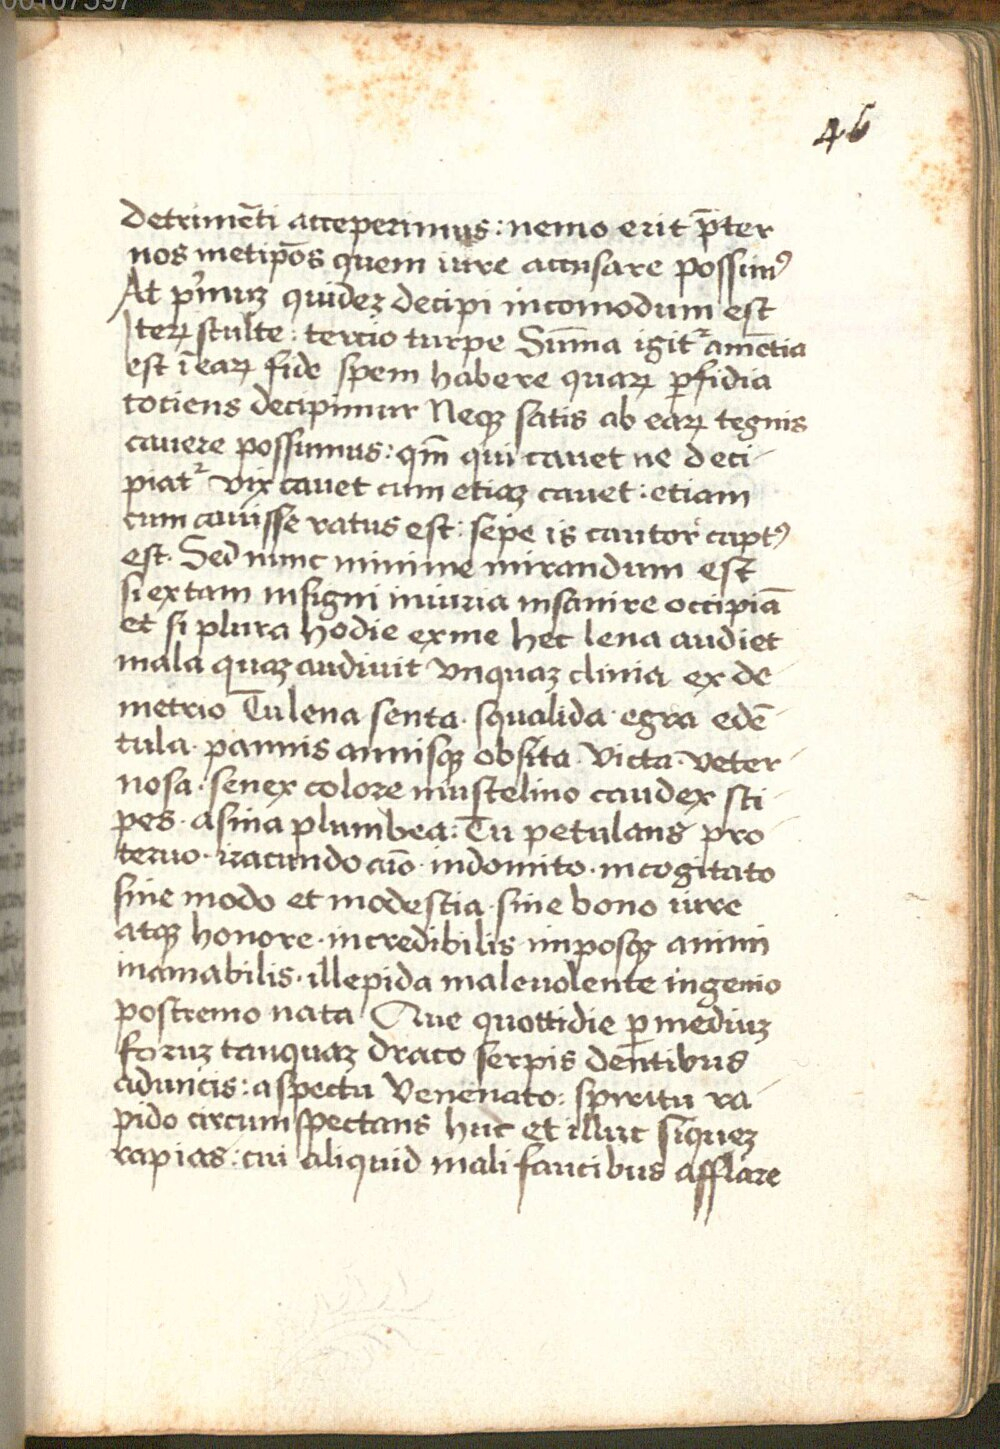 00107597
46
detrimẽti acceperimus : nemo erit p̃ter
nos metip̃os quem iure accusare possimꝰ
At p'muʒ quideʒ decipi incomodum est
Iteꝝ stulte : tercio turpe Sum̃a igitᷣ amẽtia
est ĩ eaꝝ fide spem habere quaꝝ ꝑfidia
tociens decipimur Neqʒ satis ab eaꝝ tegnis
cauere possumus : qm̃ qui cauet ne deci-
piatᷣ vix cauet cum etiaʒ cauet : etiam
cum cauisse ratus est : sepe is cautor captꝰ
est. Sed nunc minime mirandum est
si ex tam insigni iniuria insanire occipiã
et si plura hodie ex me hec lena audiet
mala quaʒ audiuit vnquaʒ clinia ex de-
metrio Tu lena senta · squalida · egra edẽ-
tula · pannis annisqʒ obsita · victa · veter-
nosa · senex colore mustelino caudex sti-
pes · asina plumbea : Tu petulans pro-
teruo · iracundo aĩo · indomito · incogitato
sine modo et modestia · sine bono iure
atqʒ honore · incredibilis imposqʒ animi
inamabilis · illepida maleuolente ingenio
postremo nata Aue quottidie ꝑ mediuʒ
foruʒ tanquaʒ draco serpis dentibus
aduncis : aspectu venenato : spiritu ra-
pido circumspectans huc et illuc si queʒ
rapias : cui aliquid mali faucibus afflare